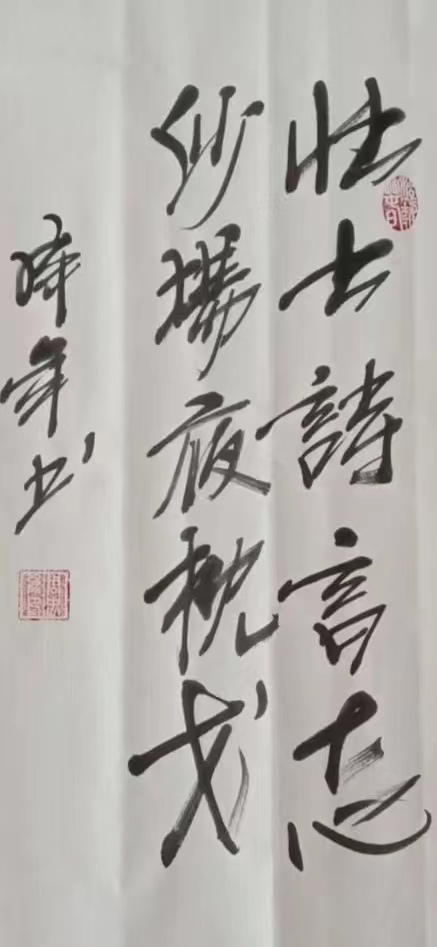 壮士詩言志
沙場夜枕戈
年书